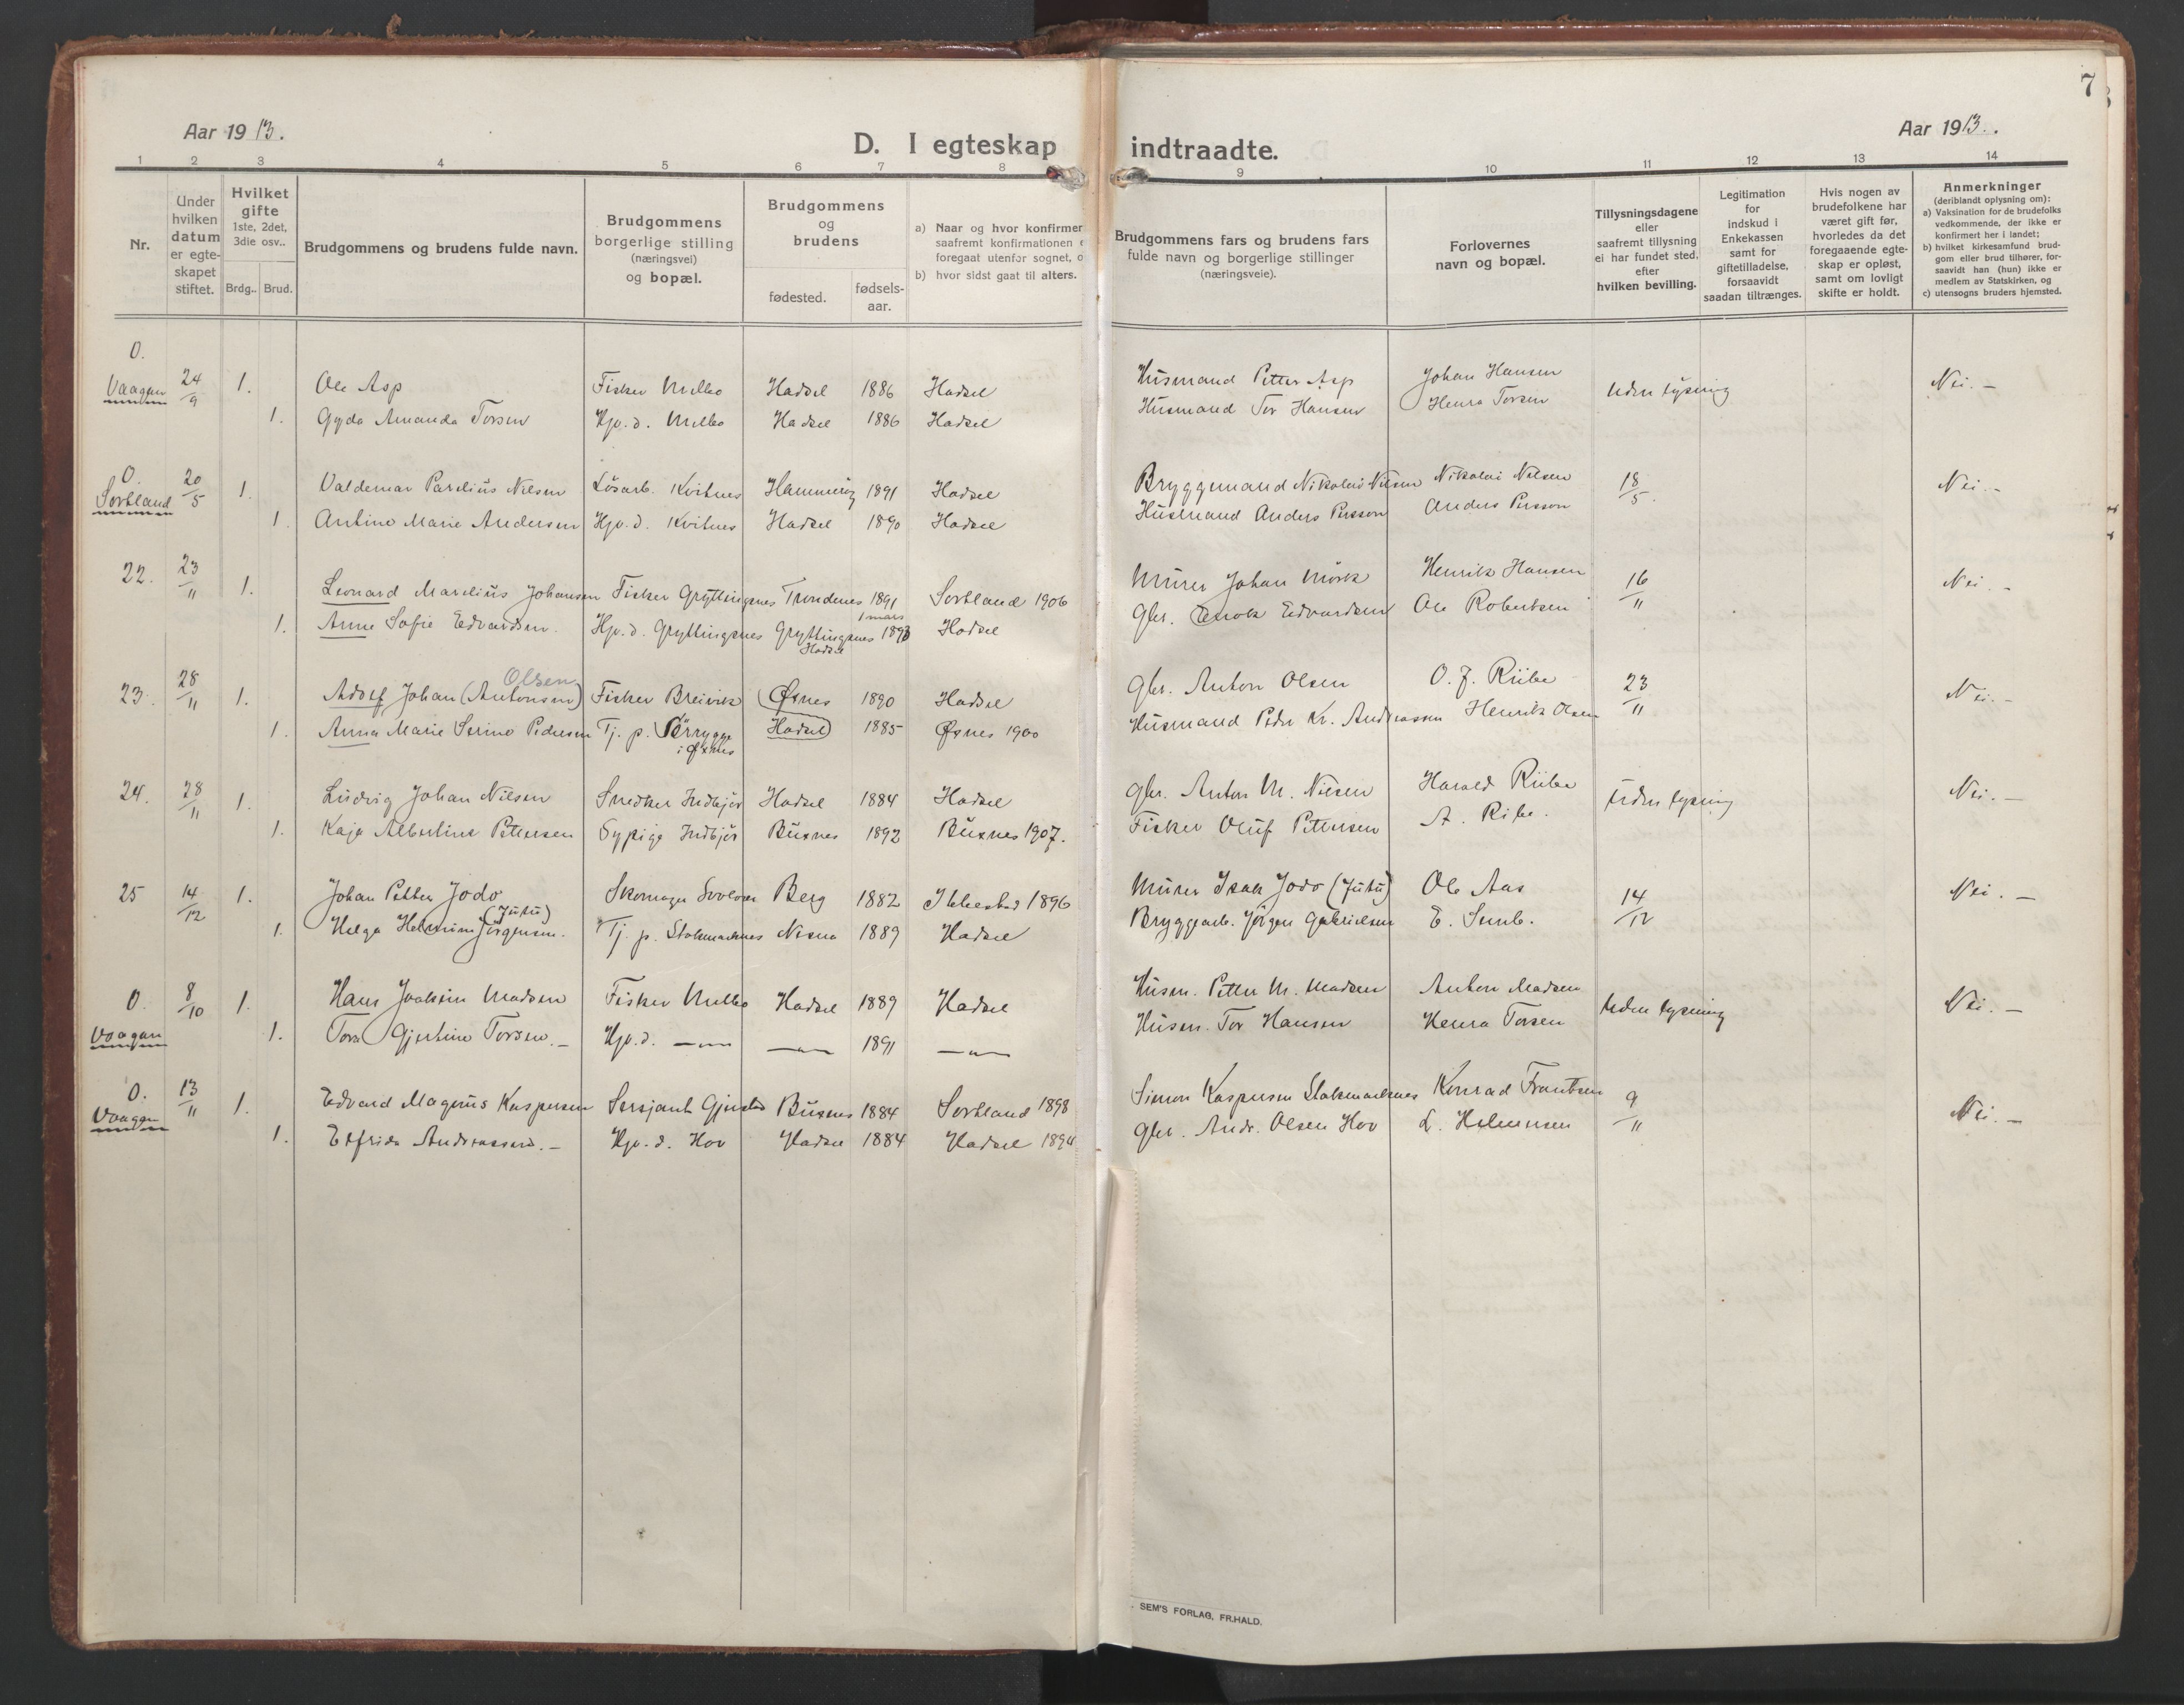 7
Aar 1913.
D. I egteskap indtraadte.
Aar 1913.
1 2 3 4 5 6 7 8 9 10 11 12 13 14
Nr.
Under hvilken datum er egteskapet stiftet.
Hvilket gifte 1ste, 2det, 3die osv..
Brdg.. Brud.
Brudgommens og brudens fulde navn.
Brudgommens borgerlige stilling (næringsvei) og bopæl.
Brudgommens og brudens
fødested. fødselsaar.
a) Naar og hvor konfirmer
saafremt konfirmationen e
foregaat utenfor sognet, o
b) hvor sidst gaat til alters.
Brudgommens fars og brudens fars fulde navn og borgerlige stillinger (næringsveie).
Forlovernes navn og bopæl.
Tillysningsdagene eller saafremt tillysning ei har fundet sted, efter hvilken bevilling.
Legitimation for indskud i Enkekassen samt for giftetilladelse, forsaavidt saadan tiltrænges.
Hvis nogen av brudefolkene har været gift før, hvorledes da det foregaaende egteskap er opløst, samt om lovligt skifte er holdt.
Anmerkninger
(deriblandt oplysning om):
a) Vaksination for de brudefolks vedkommende, der ikke er konfirmert her i landet;
b) hvilket kirkesamfund brudgom eller brud tilhører, forsaavidt han (hun) ikke er medlem av Statskirken, og
c) utensogns bruders hjemsted.
0. Vaagan 24/9 1. Ole Asp Fisker Melbo Hadsel 1886 Hadsel Husmand Petter Asp Johan Hansen Uden lysning Nei. –
1. Gyda Amanda Torsen Hjv. d. Melbo Hadsel 1886 Hadsel Husmand Tor Hansen Henra Torsen
0. Sortland 20/5 1. Valdemar Parelius Nilsen Løsarb. Kvitnes Hammerøy 1891 Hadsel Bryggemand Nikolai Nilsen Nikolai Nilsen 18/5. Nei. –
1. Antine Marie Andersen Hjv. d. Kvitnes Hadsel 1890 Hadsel Husmand Anders Persson Anders Persson
22. 23/11 1. Leonard Marelius Johansen Fisker Gryttingsnes Trondenes 1891 Sortland 1906 Murer Johan Mörk Henrik Hansen 16/11 Nei. –
1. Anne Sofie Edvardsen. Hjv. d. Gryttingsnes Gryttingsnes Hadsel 1 mars 1893 Hadsel Gbr. Enok Edvardsen Ole Robertsen
23. 28/11 1. Adolf Johan (Antonsen) Olsen Fisker Breivik Øxnes 1890 Hadsel Gbr. Anton Olsen O. J. Riibe 23/11 Nei. –
1. Anna Marie Serine Pedersen Tj. p. i Øxnes Hadsel 1885 Øxnes 1900 Husmand Peder Kr. Andreassen Henrik Olsen
24. 28/11 1. Ludvig Johan Nilsen Snedker Indbjör Hadsel 1884 Hadsel Gbr. Anton M. Nilsen Harald Riibe Uden lysning Nei. –
1. Kaja Albertine Pettersen Sypige Indbjör Buxnes 1892 Buxnes 1907. Fisker Oluf Pettersen A. Ribe.
25 14/12 1. Johan Petter Jodo (Jutu) Skomager Svolvær Berg 1882 Ibbestad 1896 Murer Isak Jodo (Jutu) Ole Aas 14/12 Nei. –
1. Helga Helmine Jörgensen. Tj. p. Stokmarknes Nesna 1889 Hadsel Bryggearb. Jörgen Gabrielsen E. Simb.
0. Vaagan 8/10 1. Hans Joakim Madsen Fisker Melbo Hadsel 1889 Hadsel Husm. Petter M. Madsen Anton Madsen Uden lysning Nei. –
1. Tora Gjertine Torsen. – Hjv. d. —"— —"— 1891 —"— Husm. Tor Hansen Henra Torsen
0. Vaagan 13/11 1. Edvard Magnus Kaspersen Sersjant Gjersta Buxnes 1884 Sortland 1898 Simon Kaspersen Stokmarknes Konrad Frantsen 9/11 Nei. –
1. Elfrida Andreassen. – Hjv. d. Hov Hadsel 1884 Hadsel 1894 Gbr. Andr. Olsen Hov L. Helmersen
SEM'S FORLAG, FR.HALD.